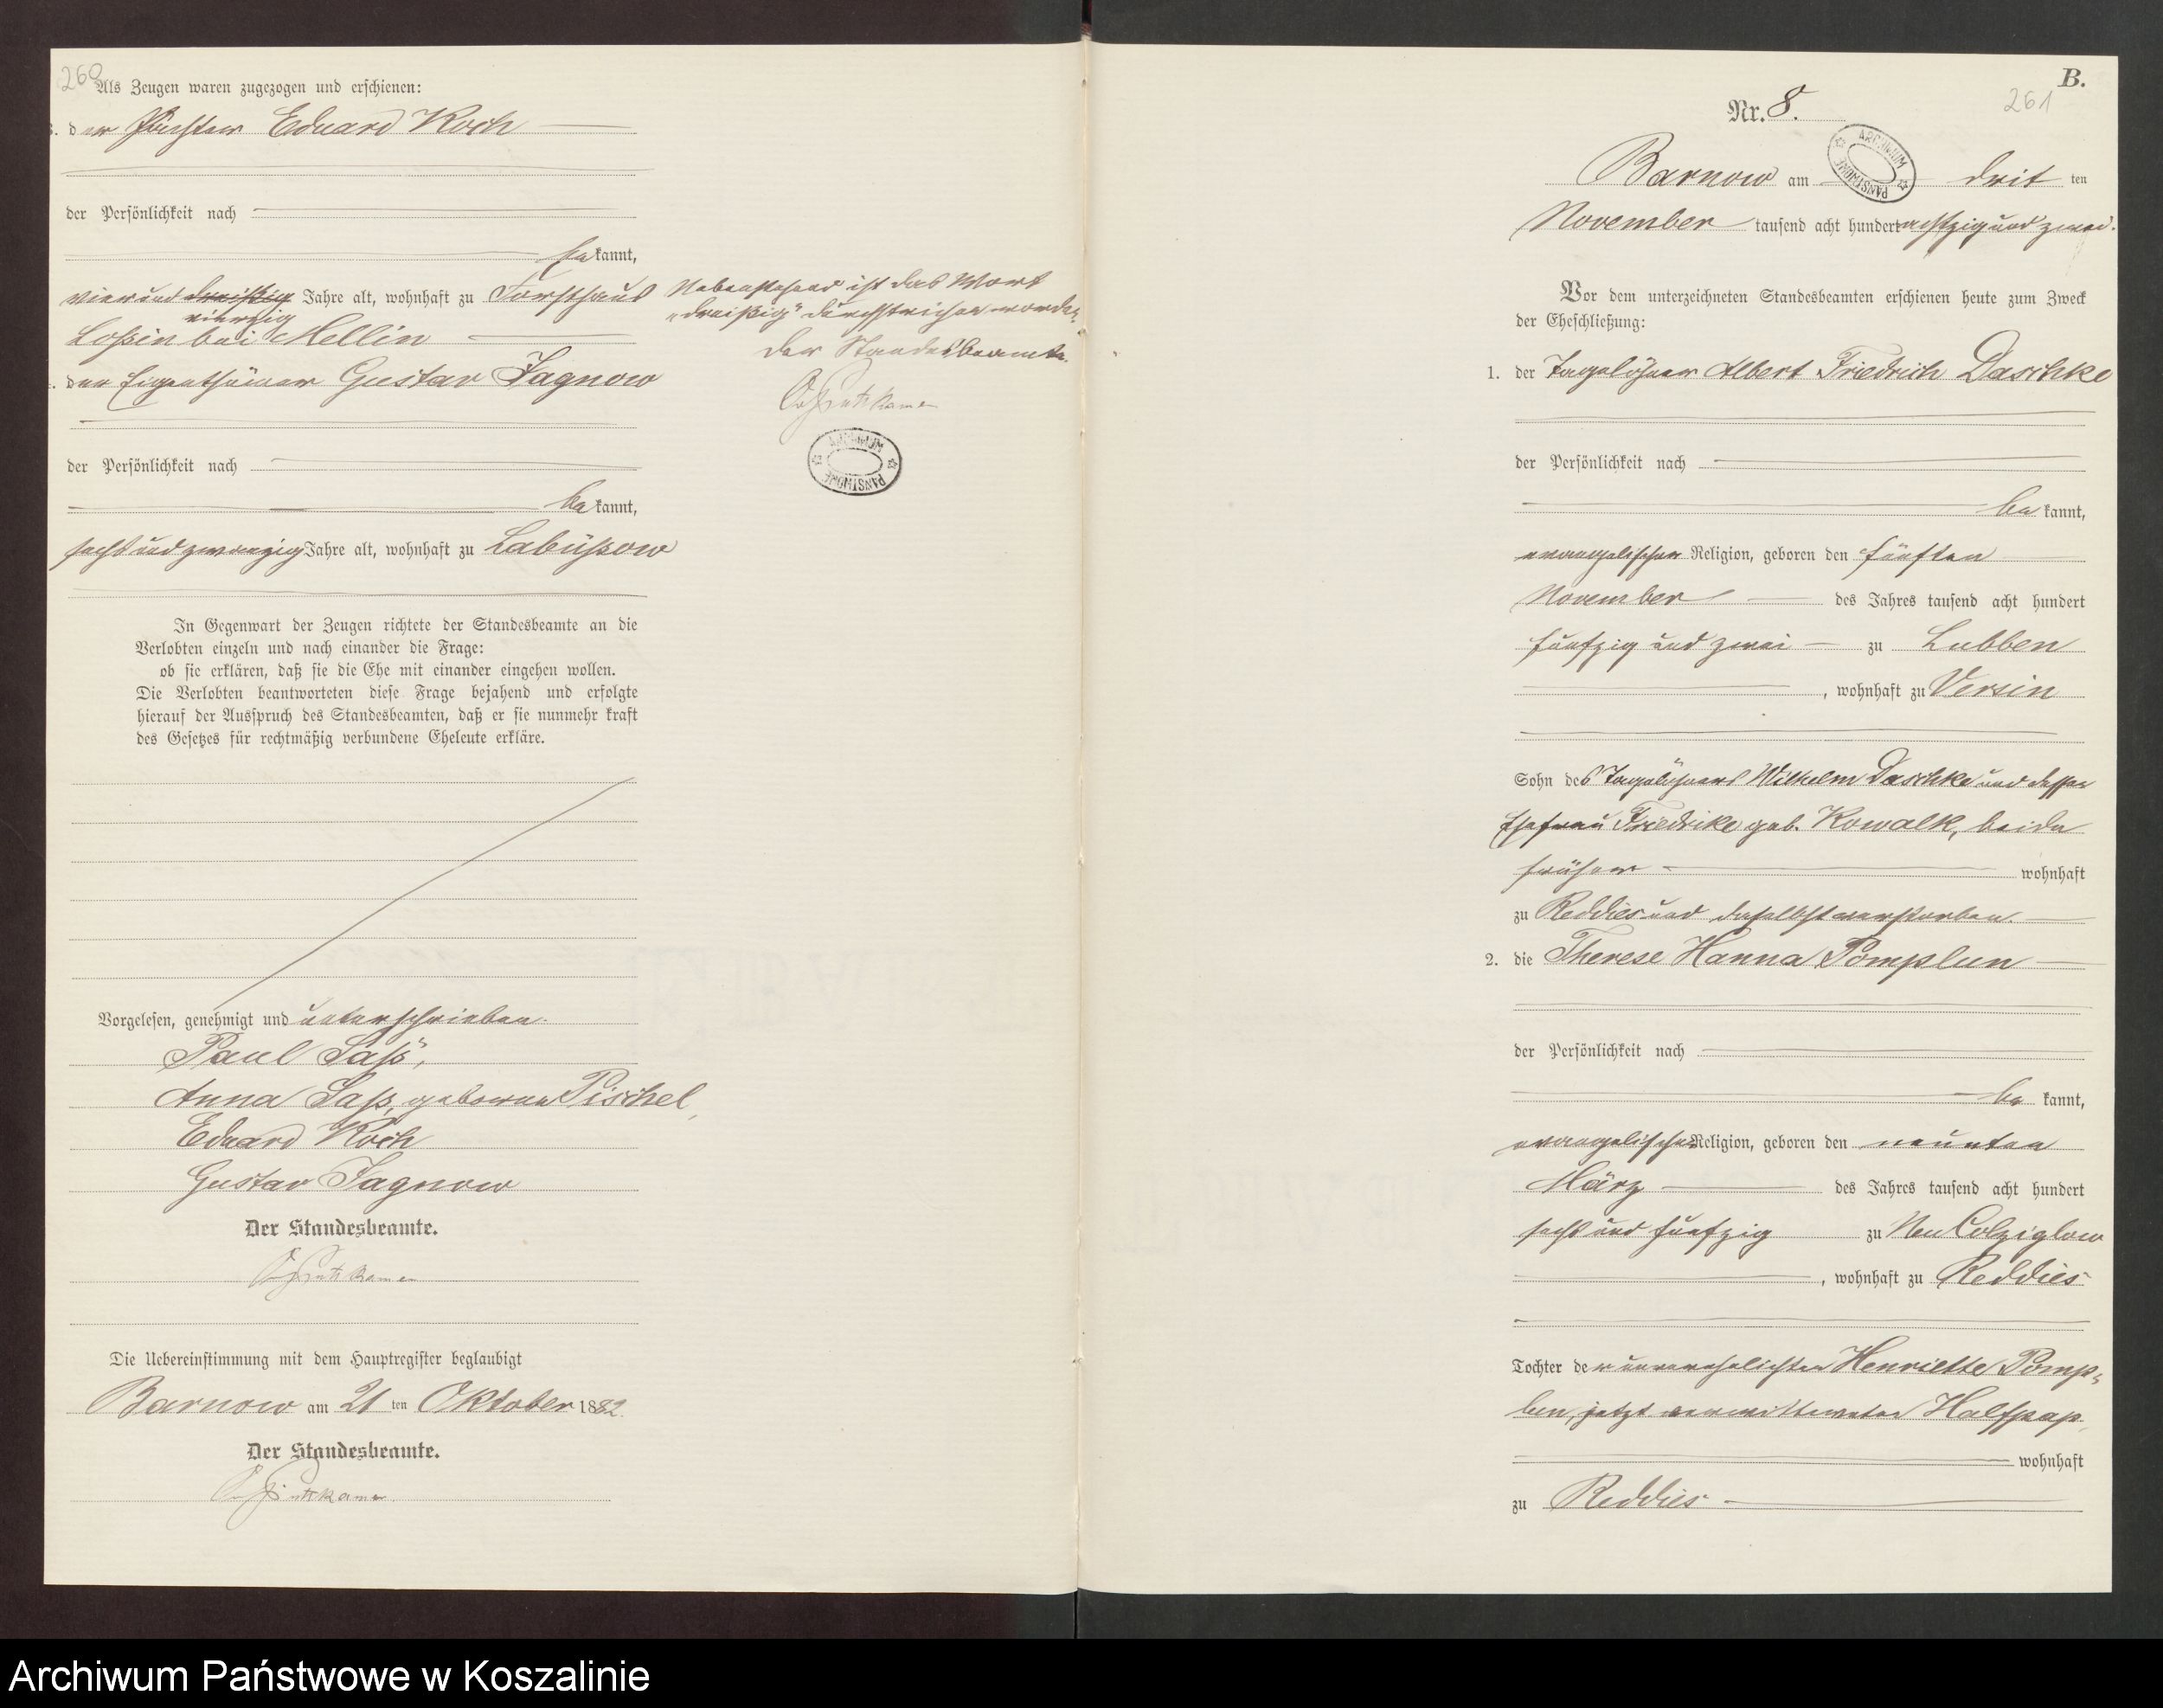 260
Als Zeugen waren zugezogen und erschienen:
3. der Förster Eduard Koch
der Persönlichkeit nach
bekannt,
vierund dreißig Jahre alt, wohnhaft zu Forsthaus
vierzig
Loßin bei Mellin
4. der Eigenthümer Gustav Jagnow
der Persönlichkeit nach
bekannt,
sechs und zwanzig Jahre alt, wohnhaft zu Labüssow
In Gegenwart der Zeugen richtete der Standesbeamte an die
Verlobten einzeln und nach einander die Frage:
ob sie erklären, daß sie die Ehe mit einander eingehen wollen.
Die Verlobten beantworteten diese Frage bejahend und erfolgte
hierauf der Ausspruch des Standesbeamten, daß er sie nunmehr kraft
des Gesetzes für rechtmäßig verbundene Eheleute erkläre.
Vorgelesen, genehmigt und unterschrieben.
Paul Saß,
Anna Saß, geborene Pischel,
Eduard Koch
Gustav Jagnow
Der Standesbeamte.
Puttkamer
Die Uebereinstimmung mit dem Hauptregister beglaubigt
Barnow am 21 ten Oktober 1882.
Der Standesbeamte.
Puttkamer
Nebenstehend ist das Wort
„dreißig" durchstrichen worden
Der Standesbeamte.
Puttkamer
ARCHIWUM PAŃSTWOWE
B.
261
Nr. 8.
ARCHIWUM PAŃSTWOWE
Barnow am drit ten
November tausend acht hundert achtzig und zwei.
Vor dem unterzeichneten Standesbeamten erschienen heute zum Zweck
der Eheschließung:
1. der Tagelöhner Albert Friedrich Daschke
der Persönlichkeit nach
bekannt,
evangelischer Religion, geboren den fünften
November des Jahres tausend acht hundert
fünfzig und zwei zu Lubben
, wohnhaft zu Versin
Sohn des Tagelöhners Wilhelm Daschke und dessen
Ehefrau Friedrike geb. Kowalk, beide
früher wohnhaft
zu Reddies und daselbst verstorben.
2. die Therese Hanna Pomplun
der Persönlichkeit nach
bekannt,
evangelischer Religion, geboren den neunten
März des Jahres tausend acht hundert
sechs und fünfzig zu Neu Colziglow
, wohnhaft zu Reddies
Tochter der unverehelichten Henriette Pomp-
lun, jetzt verwittweten Halfpap
wohnhaft
zu Reddies
Archiwum Państwowe w Koszalinie